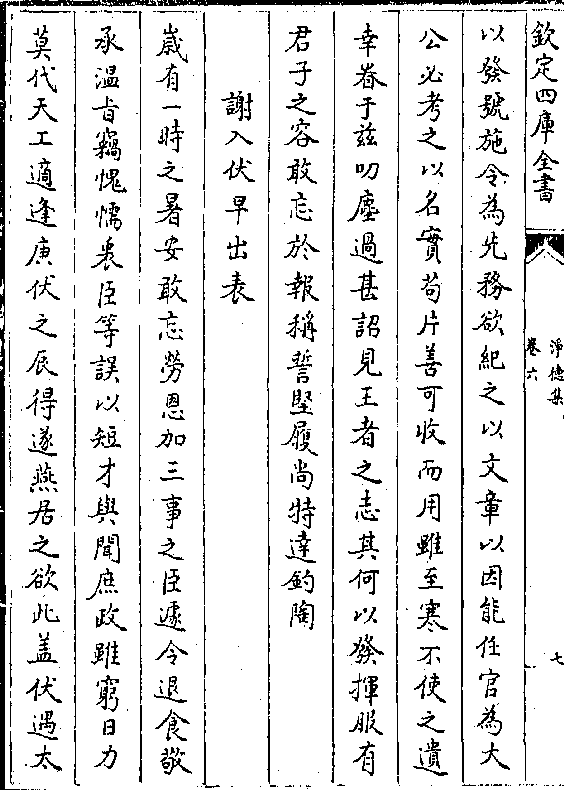 欽定四庫全書
淨德集
卷六
七
以發號施令為先務欲紀之以文章以因能任官為大
公必考之以名實苟片善可收而用雖至寒不使之遺
幸眷于兹叨塵過甚詔見王者之志其何以發揮服有
君子之容敢忘於報稱誓堅履尚特達鈞陶
謝入伏早出表
嵗有一時之暑安敢忘勞恩加三事之臣遽令退食敬
承温㫖竊愧懦衷臣等誤以短才與聞庶政雖窮日力
莫代天工適逢庚伏之辰得遂燕居之欲此盖伏遇太